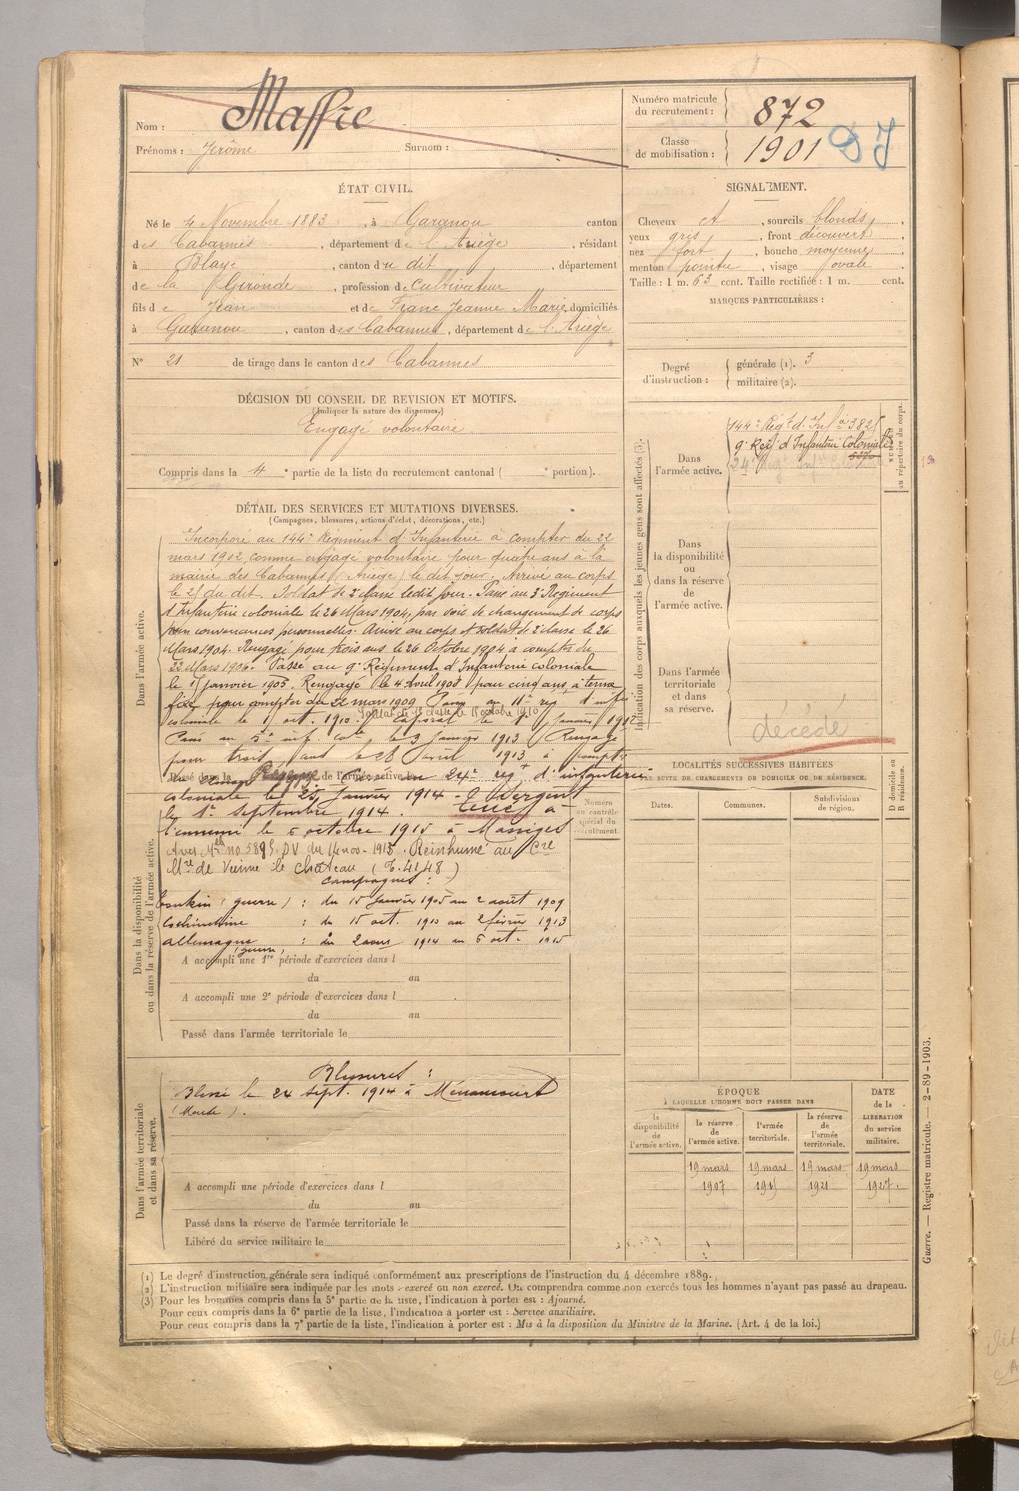 Nom : Maffre
Prénoms : Jérôme Surnom :
Numéro matricule du recrutement : 872
Classe de mobilisation : 1901
DJ
ÉTAT CIVIL.
Né le 4 Novembre 1883, à Garanou canton
des Cabannes, département de l'Ariège, résidant
à Blaye, canton du dit, département
de la Gironde, profession de cultivateur
fils de Jean et de Franc Jeanne Marie, domiciliés
à Garanou, canton des Cabannes, département de l'Ariège
N° 21 de tirage dans le canton des Cabannes
SIGNALEMENT.
Cheveux ct, sourcils blonds,
yeux gris, front découvert,
nez fort, bouche moyenne,
menton pointu, visage ovale
Taille : 1 m. 63 cent. Taille rectifiée : 1 m. cent.
MARQUES PARTICULIÈRES :
Degré d'instruction : générale (1). 3
militaire (2).
DÉCISION DU CONSEIL DE REVISION ET MOTIFS.
(Indiquer la nature des dispenses.)
Engagé volontaire
Compris dans la 4e partie de la liste du recrutement cantonal ( e portion).
DÉTAIL DES SERVICES ET MUTATIONS DIVERSES.
(Campagnes, blessures, actions d'éclat, décorations, etc.)
Dans l'armée active.
Incorporé au 144e Régiment d'Infanterie à compter du 22
mars 1902 comme engagé volontaire pour quatre ans à la
mairie des Cabannes (Ariège) le dit jour. Arrivé au corps
le dit. Soldat de 2e classe ledit jour. Passé au 3e Régiment
d'Infanterie coloniale le 26 Mars 1904, par voie de changement de corps
pour convenances personnelles. Arrivé au corps et soldat de 2e classe le 26
Mars 1904. Rengagé pour trois ans le 26 Octobre 1904 à compter du
22 Mars 1906. Passé au 9e Régiment d'Infanterie coloniale
le 1 janvier 1905. Rengagé le 4 Avril 1908 pour cinq ans à terme
fixe, pour compter du 22 mars 1909 Passé au 11e régt d'infrie
Soldat de 1e classe le 18 octobre 1910
coloniale le 1 oct. 1910. Caporal le 1 Janvier 1912
Passé au 5e inf. cole le 3 Janvier 1913 Rengagé
pour trois ans le 28 avril 1913 à compter
Passé dans la Réserve de l'armée active
Passé au 24e régt d'infanterie
coloniale le 25 Janvier 1914 - Sergent
le 1er septembre 1914. Tué à
l'ennemi le 6 octobre 1915 à Massiges
Avis Mel no 5898 DV du 14 nov. 1915. Réinhumé au Cre
Mre de Vienne le château (T. 4148)
campagnes :
Dans la disponibilité ou dans la réserve de l'armée active.
Tonkin (guerre) : du 15 Janvier 1905 au 2 août 1909
Cochinchine : du 15 oct. 1910 au 2 février 1913
Allemagne (guerre) : du 2 août 1914 au 6 oct. 1915
A accompli une 1re période d'exercices dans l
du au
A accompli une 2e période d'exercices dans l
du au
Passé dans l'armée territoriale le
Dans l'armée territoriale et dans sa réserve.
Blessures :
Blessé le 24 sept. 1914 à Minaucourt
(Marne).
A accompli une période d'exercices dans l
du au
Passé dans la réserve de l'armée territoriale le
Libéré du service militaire le
Numéro au contrôle spécial du recrutement.
Indication des corps auxquels les jeunes gens sont affectés (3).
Dans l'armée active.
144e Régt d'Infie 382
9e Regt d'Infanterie Coloniale
24e Régt Infie Coloniale
NUMÉRO au répertoire du corps.
Dans la disponibilité ou dans la réserve de l'armée active.
Dans l'armée territoriale et dans sa réserve.
décédé
LOCALITÉS SUCCESSIVES HABITÉES
PAR SUITE DE CHANGEMENTS DE DOMICILE OU DE RÉSIDENCE.
Dates. Communes. Subdivisions de région. D domicile ou R résidence.
ÉPOQUE
À LAQUELLE L'HOMME DOIT PASSER DANS
la disponibilité de l'armée active. la réserve de l'armée active. l'armée territoriale. la réserve de l'armée territoriale.
DATE de la LIBÉRATION du service militaire.
19 mars 19 mars 19 mars 19 mars
1907 1915 1921 1927.
(1) Le degré d'instruction générale sera indiqué conformément aux prescriptions de l'instruction du 4 décembre 1889.
(2) L'instruction militaire sera indiquée par les mots exercé ou non exercé. On comprendra comme non exercés tous les hommes n'ayant pas passé au drapeau.
(3) Pour les hommes compris dans la 5e partie de la liste, l'indication à porter est : Ajourné.
Pour ceux compris dans la 6e partie de la liste, l'indication à porter est : Service auxiliaire.
Pour ceux compris dans la 7e partie de la liste, l'indication à porter est : Mis à la disposition du Ministre de la Marine. (Art. 4 de la loi.)
Guerre. — Registre matricule. — 2-89-1903.